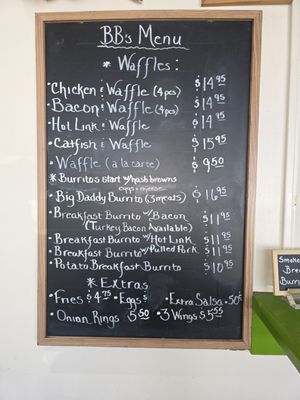 BB's Menu
* Waffles:
• Chicken & Waffle (4pcs) $14.95
• Bacon & Waffle (4pcs) $14.95
• Hot Link & Waffle $14.95
• Catfish & Waffle $15.95
• Waffle (a la carte) $9.50
* Burritos start w/ hash browns
eggs & cheese
• Big Daddy Burrito (3 meats) $16.95
• Breakfast Burrito w/ Bacon $11.95
(Turkey Bacon Available)
• Breakfast Burrito w/ Hot Link $11.95
• Breakfast Burrito w/ Pulled Pork $11.95
• Potato Breakfast Burrito $10.95
* Extras
• Fries $4.75 • Eggs $ • Extra Salsa .50¢
• Onion Rings 5.50 • 3 Wings $5.55
Smoke
Bre
Burr